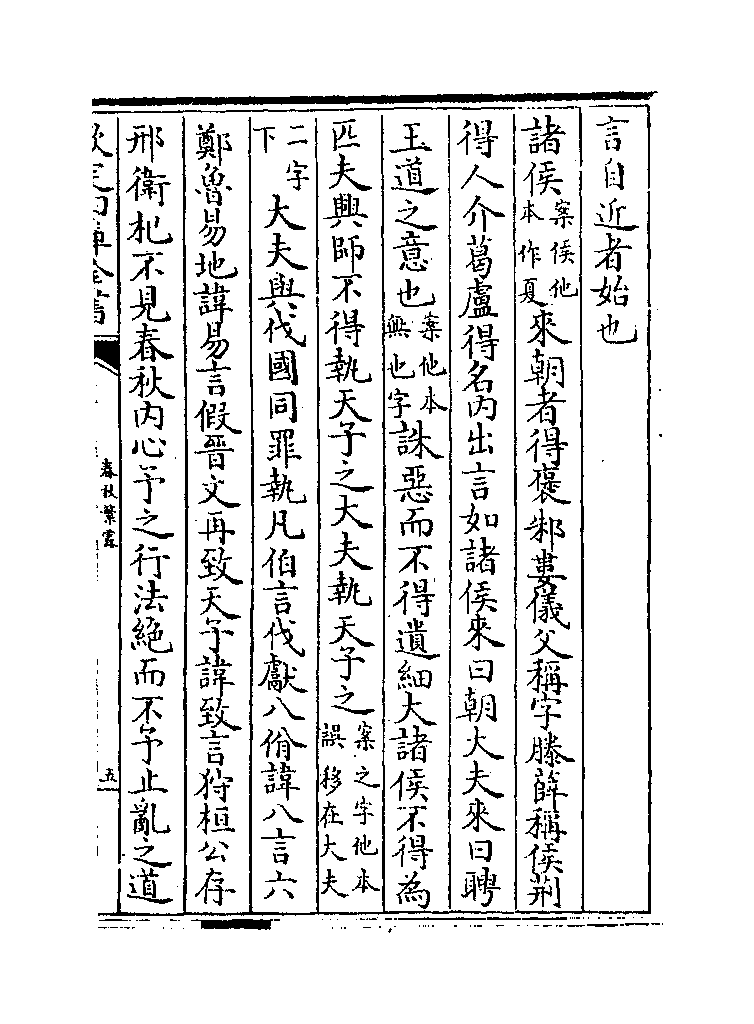 言自近者始也
諸侯案侯他本作夏來朝者得褒邾婁儀父稱字滕薛稱侯荆
得人介葛盧得名内出言如諸侯來曰朝大夫來曰聘
王道之意也案他本無也字誅惡而不得遺細大諸侯不得為
匹夫興師不得執天子之大夫執天子之案之字他本誤移在大夫
二字下大夫與伐國同罪執凡伯言伐獻八佾諱八言六
鄭魯易地諱易言假晉文再致天子諱致言狩桓公存
邢衛杞不見春秋内心予之行法絶而不予止亂之道
欽定四庫全書
春秋繁露
五